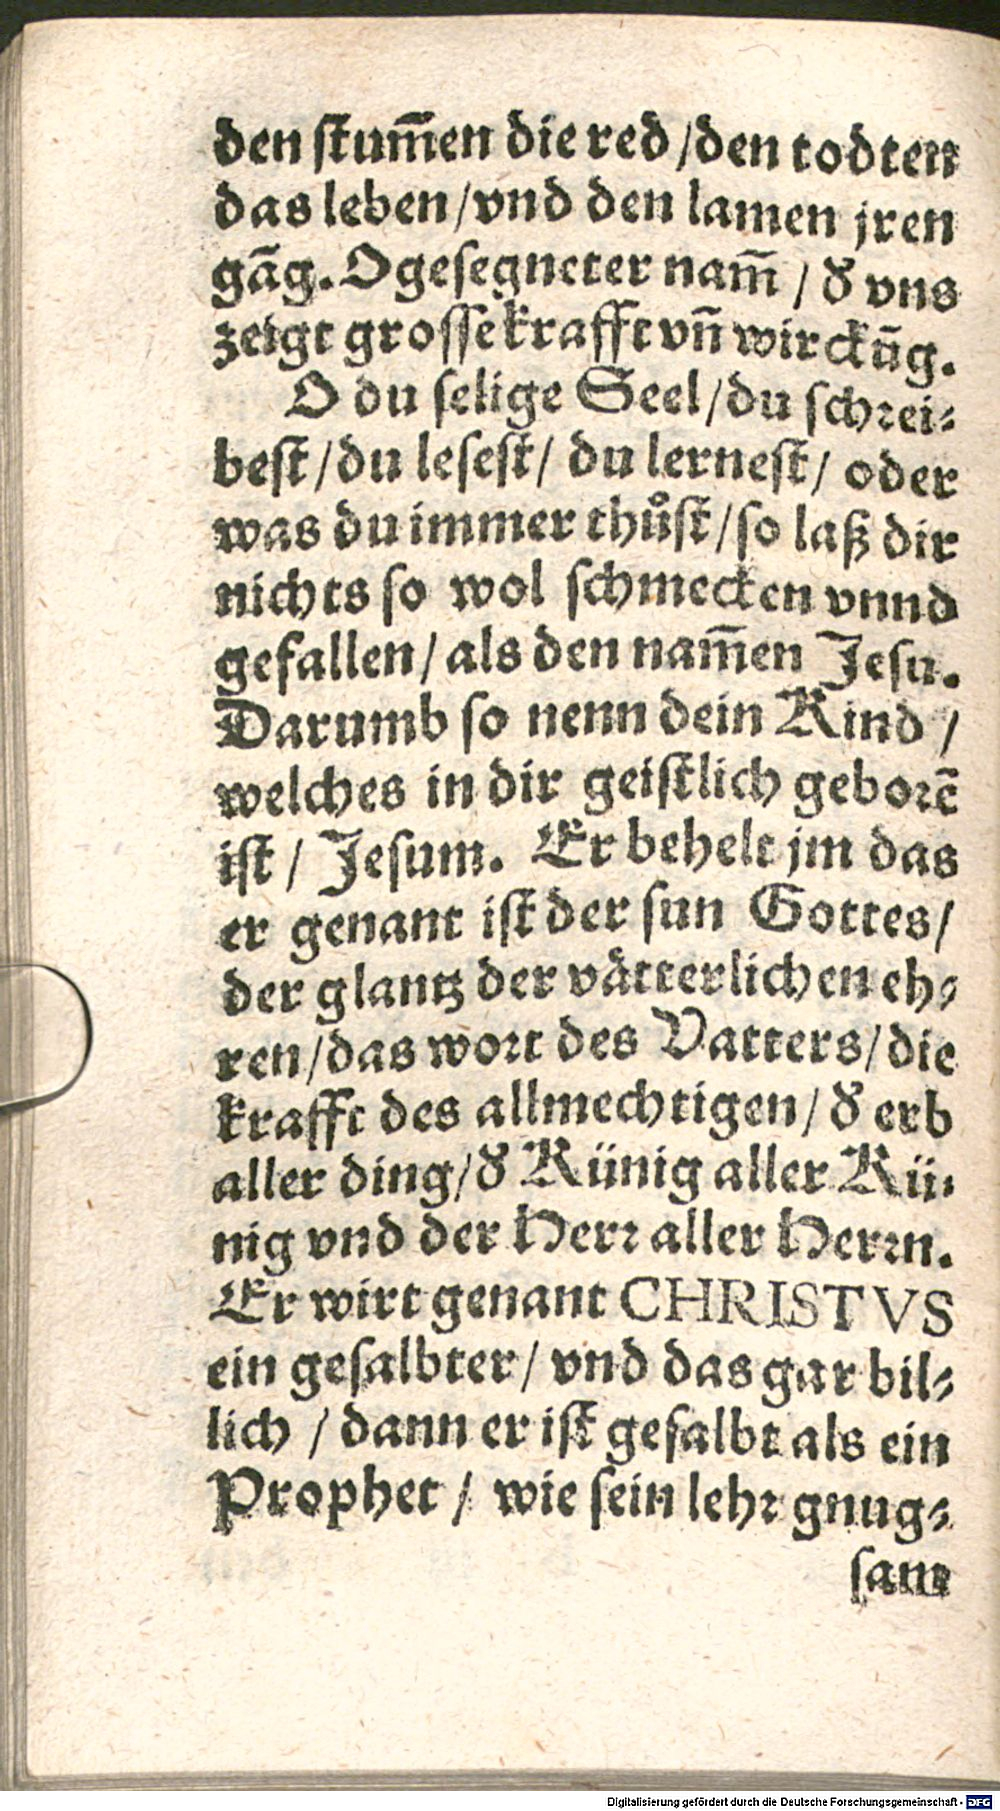 den ſtum̄en die red / den todten
das leben / vnd den lamen jren
gāg. O geſegneter nam̄ / d̕ vns
zeigt groſſe krafft vn̄ wirckūg.
O du ſelige Seel / du ſchꝛei⸗
beſt / du leſeſt / du lerneſt / oder
was du immer thůſt / ſo laß dir
nichts ſo wol ſchmecken vnnd
gefallen / als den nam̄en Jeſu.
Darumb ſo nenn dein Kind /
welches in dir geiſtlich geboꝛē
iſt / Jeſum. Er behelt jm das
er genant iſt der ſun Gottes /
der glantz der vaͤtterlichen eh⸗
ren / das woꝛt des Vatters / die
krafft des allmechtigen / d̕ erb
aller ding / d̕ Künig aller Kü⸗
nig vnd der Herꝛ aller Herꝛn.
Er wirt genant CHRISTVS
ein geſalbter / vnd das gar bil⸗
lich / dann er iſt geſalbt als ein
Prophet / wie ſein lehꝛ gnug⸗
ſam
Digitalisierung gefördert durch die Deutsche Forschungsgemeinschaft - DFG